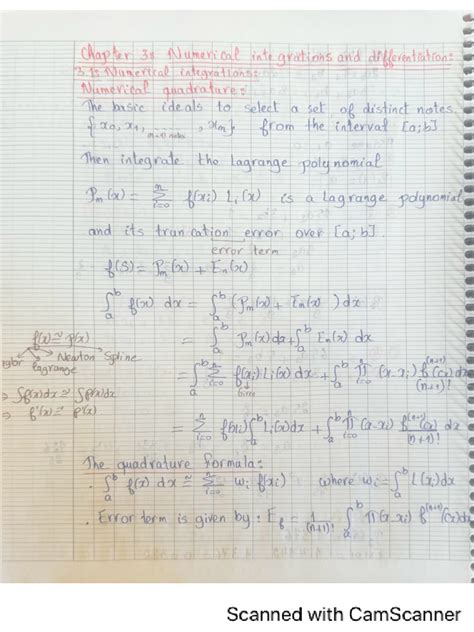 Chapter 3: Numerical integrations and differentiation:
3.1: Numerical integrations:
Numerical quadrature:
The basic ideals to select a set of distinct notes
{x₀, x₁, , xₘ} from the interval [a;b]
(n+1) nodes
Then integrate the lagrange polynomial
Pₘ(x) = Σⁿᵢ₌₀ f(xᵢ) Lᵢ(x) is a lagrange polynomial
and its truncation error over [a;b].
error term
f(S) = Pₘ(x) + Eₙ(x)
∫ₐᵇ f(x) dx = ∫ₐᵇ (Pₘ(x) + Eₙ(x)) dx
= ∫ₐᵇ Pₘ(x) dx + ∫ₐᵇ Eₙ(x) dx
f(x) ≅ p(x)
Newton Spline
lagrange
⇒ ∫f(x)dx ≅ ∫p(x)dx
⇒ f'(x) ≅ p'(x)
= ∫ₐᵇ Σⁿᵢ₌₀ f(xᵢ) Lᵢ(x) dx + ∫ₐᵇ Πⁿᵢ₌₀ (x-xᵢ) f⁽ⁿ⁺¹⁾(cx)/(n+1)! dx
= Σⁿᵢ₌₀ f(xᵢ) ∫ₐᵇ Lᵢ(x)dx + ∫ₐᵇ Πⁿᵢ₌₀ (x-xᵢ) f⁽ⁿ⁺¹⁾(cx)/(n+1)! dx
The quadrature formula:
. ∫ₐᵇ f(x) dx ≅ Σⁿᵢ₌₀ wᵢ f(xᵢ) where wᵢ = ∫ₐᵇ L(xᵢ)dx
. Error term is given by: E = 1/(n+1)! ∫ₐᵇ Π(x-xᵢ) f⁽ⁿ⁺¹⁾(cx)dx
Scanned with CamScanner